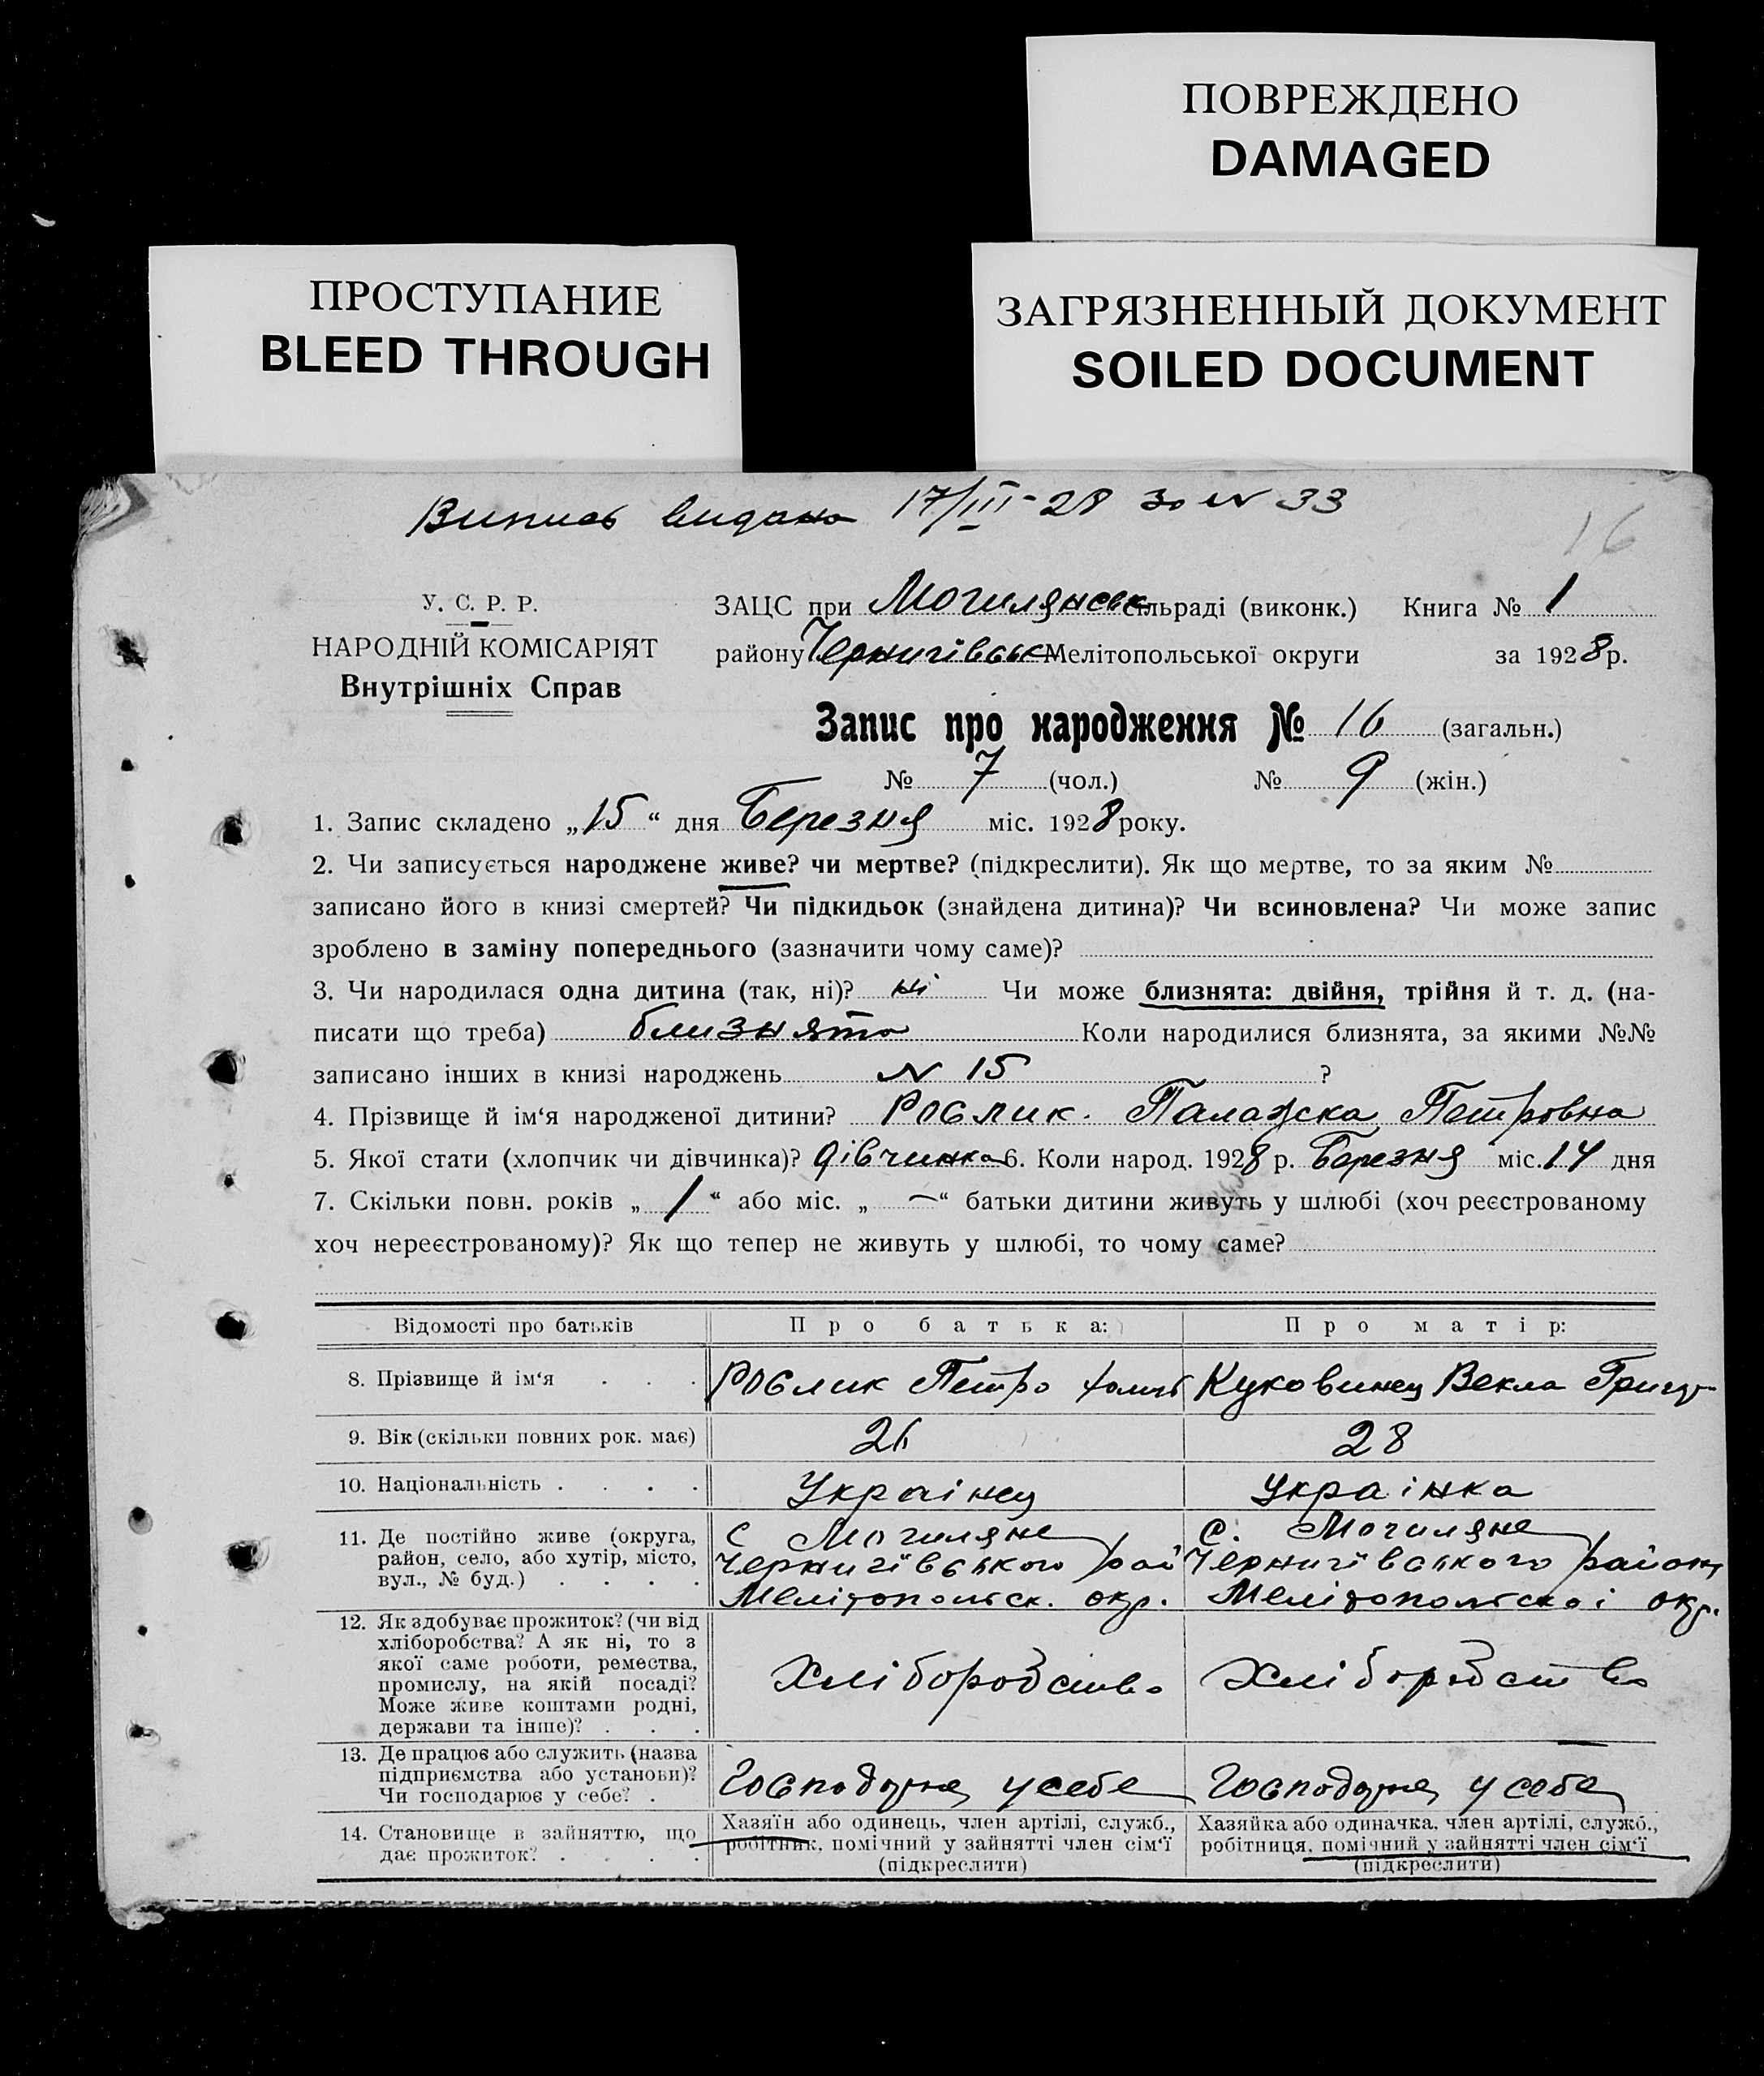 ПОВРЕЖДЕНО
DAMAGED
ПРОСТУПАНИЕ
BLEED THROUGH
ЗАГРЯЗНЕННЫЙ ДОКУМЕНТ
SOILED DOCUMENT
Випись видана 17/III-28 за N 33
16
У. С. Р. Р.
НАРОДНІЙ КОМІСАРІЯТ
Внутрішніх Справ
ЗАЦС при Могилянськ сільраді (виконк.) Книга № 1
району Чернигівськ Мелітопольської округи за 1928 р.
Запис про народження № 16 (загальн.)
№ 7 (чол.) № 9 (жін.)
1. Запис складено „15“ дня Березня міс. 1928 року.
2. Чи записується народжене живе? чи мертве? (підкреслити). Як що мертве, то за яким №
записано його в книзі смертей? Чи підкидьок (знайдена дитина)? Чи всиновлена? Чи може запис
зроблено в заміну попереднього (зазначити чому саме)?
3. Чи народилася одна дитина (так, ні)? ні Чи може близнята: двійня, трійня й т. д. (на-
писати що треба) близнята Коли народилися близнята, за якими №№
записано інших в книзі народжень N 15 ?
4. Прізвище й ім‘я народженої дитини? Рослик Палажка Петровна
5. Якої стати (хлопчик чи дівчинка)? дівчинка 6. Коли народ. 1928 р. Березня міс. 14 дня
7. Скільки повн. років „1“ або міс. „—“ батьки дитини живуть у шлюбі (хоч реєстрованому
хоч нереєстрованому)? Як що тепер не живуть у шлюбі, то чому саме?
Відомості про батьків Про батька: Про матір:
8. Прізвище й ім‘я . . . Рослик Петро Куковинец Векла Григор
9. Вік (скільки повних рок. має) 26 28
10. Національність . . . . Украінец Украінка
11. Де постійно живе (округа, с Могиляне с. Могиляне
район, село, або хутір, місто, Чернигівського рай Чернигівського району
вул., № буд.) . . . . Мелітопольск. окр. Мелітопольскоі окр.
12. Як здобуває прожиток? (чи від
хліборобства? А як ні, то з
якої саме роботи, ремества,
промислу, на якій посаді? Хліборобство Хліборобство
Може живе коштами родні,
держави та інше)? . . .
13. Де працює або служить (назва
підприємства або установи)? Господарює у себе Господарює у себе
Чи господарює у себе? .
14. Становище в зайняттю, що Хазяїн або одинець, член артілі, служб., Хазяйка або одиначка, член артілі, служб.,
дає прожиток? . . . . робітник, помічний у зайнятті член сім‘ї робітниця, помічний у зайнятті член сім‘ї
(підкреслити) (підкреслити)